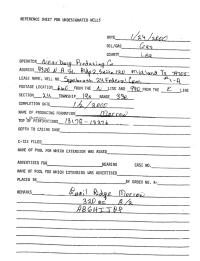 REFERENCE SHEET FOR UNDESIGNATED WELLS
DATE 1/24/2000
OIL/GAS Gas
COUNTY Lea
OPERATOR Producing Co
ADDRESS 9520 N A St Bldg 2 Suite 120 Midland Tx 79705
LEASE NAME, WELL NO. 24 Federal Com #1-A
FOOTAGE LOCATION 660 FROM THE LINE AND 990 FROM THE E LINE
SECTION 24 TOWNSHIP 19s RANGE 33e
COMPLETION DATE 1/6/2000
NAME OF PRODUCING FORMATION Morrow
TOP OF PERFORATIONS 13176 - 13276
DEPTH TO CASING SHOE
C-123 FILED
NAME OF POOL FOR WHICH EXTENSION WAS ASKED
ADVERTISED FOR HEARING CASE NO.
NAME OF POOL FOR WHICH EXTENSION WAS ADVERTISED
PLACED IN BY ORDER NO. R-
REMARKS Quail Ridge Morrow
320 ac E/2
ABGHIJOP